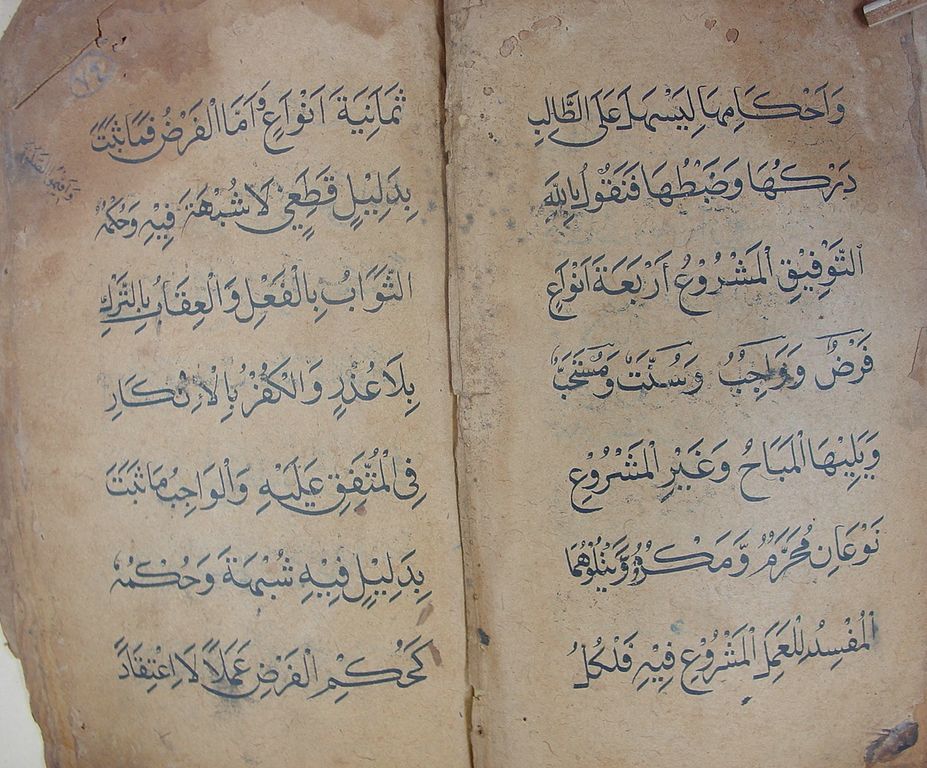 وَاَحْكَامِهَا لِيَسْهَلَ عَلَى الطَّالِبِ
دَرْكُهَا وَضَبْطُهَا فَنَقُولُ بِاللهِ
التَّوْفِيقِ الْمَشْرُوعُ اَرْبَعَةَ اَنْوَاعٍ
فَرْضٌ وَوَاجِبٌ وَسُنَّتٌ وَمُسْتَحَبٌّ
وَيَلِيْهَا الْمُبَاحُ وَغَيْرِ الْمَشْرُوْعِ
نَوْعَانِ مُحَرَّمٌ وَّمَكْرُوْهٌ وَّيَتْلُوْهُمَا
الْمُفْسِدُ لِلْعَمَلِ الْمَشْرُوْعِ فِيْهِ فَلِكُلُ
ثَمَانِيَةَ اَنْوَاعٍ وَاَمَّا الْفَرْضُ فَمَا ثَبَتَ
بِدَلِيْلٍ قَطْعِيٍّ لَا شُبْهَةَ فِيْهِ وَحُكْمُهُ
الثَّوَابُ بِالْفَعْلِ وَالْعِقَابُ بِالتَّرْكِ
بِلَا عُذْرٍ وَالْكُفْرُ بِالْاِنْكَارِ
فِى الْمُتَّفِقِ عَلَيْهِ وَالْوَاجِبُ مَا ثَبَتَ
بِدَلِيْلٍ فِيْهِ شُبْهَةَ وَحُكْمُهُ
كَحُكْمِ الْفَرْضِ عَمَلًا لَا اِعْتِقَادً